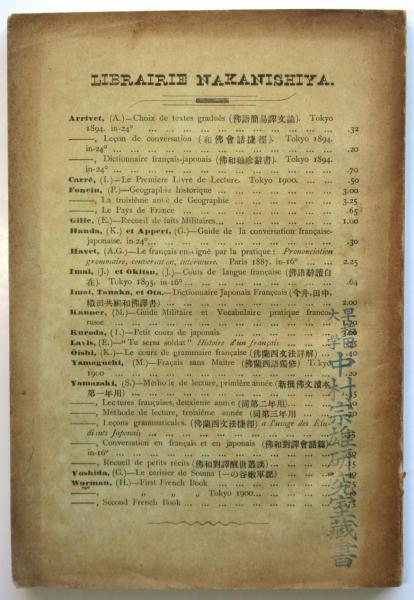 LIBRAIRIE NAKANISHIYA.
Arrivet, (A.)—Choix de textes gradués (佛語簡易譯文論). Tokyo
1894. in-24° ... .32
———, Leçon de conversation (和佛會話捷徑). Tokyo 1894.
in-24° ... .20
———, Dictionnaire français-japonais (佛和袖珍辭書). Tokyo 1894.
in-24° ... .70
Carré, (I.)—Le Premiere Livre de Lecture. Tokyo 1900. ... .50
Foncin, (P.)—Geographie historique ... 3.00
———, La troisième année de Geographie ... 3.25
———, Le Pays de France ... .65
Gille, (E.)—Recueil de faits Militaires... 1.00
Handa, (K.) et Appert, (G.)—Guide de la conversation française-
japonaise. in-24° ... .30
Havet, (A.G.)—Le français enseigné par la pratique: Prononciation
grammaire, conversation, litterature. Paris 1887. in-16° ... 2.25
Imai, (J.) et Okitsu, (J.)—Cours de langue française (佛語辭讀自
在). Tokyo 1895. in-16° ... .64
Imai, Tanaka, et Ota.—Dictionnaire Japonais Français (今井,田中,
織田共編和佛譯書) ... 2.00
Kanner, (M.)—Guide Militaire et Vocabulaire pratique franco-
russe ...
Kuroda, (T.)—Petit cours de japonais ...
Lavis, (E.)—"Tu seras soldat" Histoire d'un français ...
Oishi, (K.)—Le cours de grammaire française (佛蘭西文法詳解) ...
Yamaguchi, (M.)—Fraçais sans Maître (佛蘭西語獨修) Tokyo
1900 ...
Yamazaki, (S.)—Méthode de lecture, première année (新撰佛文讀本
第一年用) ...
———, Lectures françaises, deuxieme année (同第二年用) ...
———, Méthode de lecture, troisième année (同第三年用
———, Leçons grammaticals. (佛蘭西文法捷徑) a l'usage des Etu-
diants Japonais ...
———, Conversation en français et en japonais (佛和對譯會話篇)
in-16° ...
———, Recueil de petits récits
Yoshida, (G.)—Le cerisier de Souma
Worman, (H.)—First French Book ...
———, „ „ „ Tokyo 1900...
———, Second French Book ...
早稻田
大學
中村宗雄研究室藏書